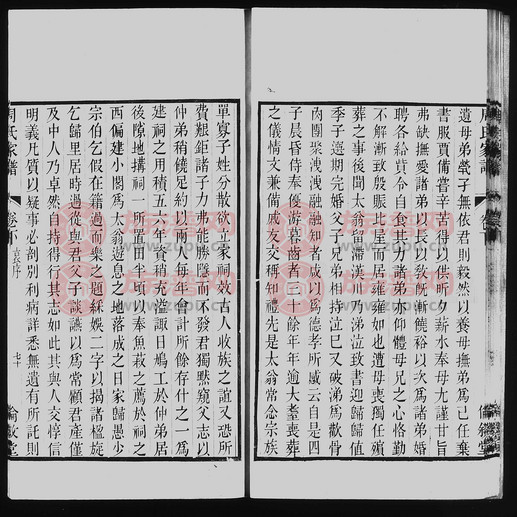 遺母弟煢子無依君則毅然以養母撫弟爲己任棄
書服賈備嘗辛苦得以供昕夕薪水奉母尤謹甘旨
弗缺撫愛諸弟以長以教旣漸饒裕以次爲諸弟婚
聘各給貲令自食其力諸弟亦仰體母兄之心恪勤
不解漸致殷賑比是而居雍雍如也遭母喪獨任殯
葬之事後聞太翁留滯漢川乃涕泣致書迎歸値
季子還期完婚父子兄弟相持泣巳又破涕爲歡骨
肉團聚洩洩融融知者咸以爲德孝所感云自是四
子晨昏侍奉優游暮齒者二十餘年年逾大耋喪葬
之儀情文兼備戚友交稱知禮先是太翁常念宗族
單寡子姓分散欲立家祠效古人收族之誼又恐所
費艱鉅諸子力弗能勝隱而不發君獨黙窺父志以
仲弟稍饒足約以兩人每年會計所餘存什之一爲
建祠之用積五六年資稍充溢諏日鳩工於仲弟居
後隙地搆祠一所置田半頃以奉魚菽之薦於祠之
西偏建小閣爲太翁遊息之地落成之日家歸愚少
宗伯乞假在籍過而樂之題綵娛二字以揭諸楹旋
乞歸里居時過從與君父子談讌以爲常顧君產僅
及中人乃卓然自持得行其志如此其與人交惇信
明義凡質以疑事必剖别利病詳悉無遺有所託則
周氏家譜
卷下
哀序
七十